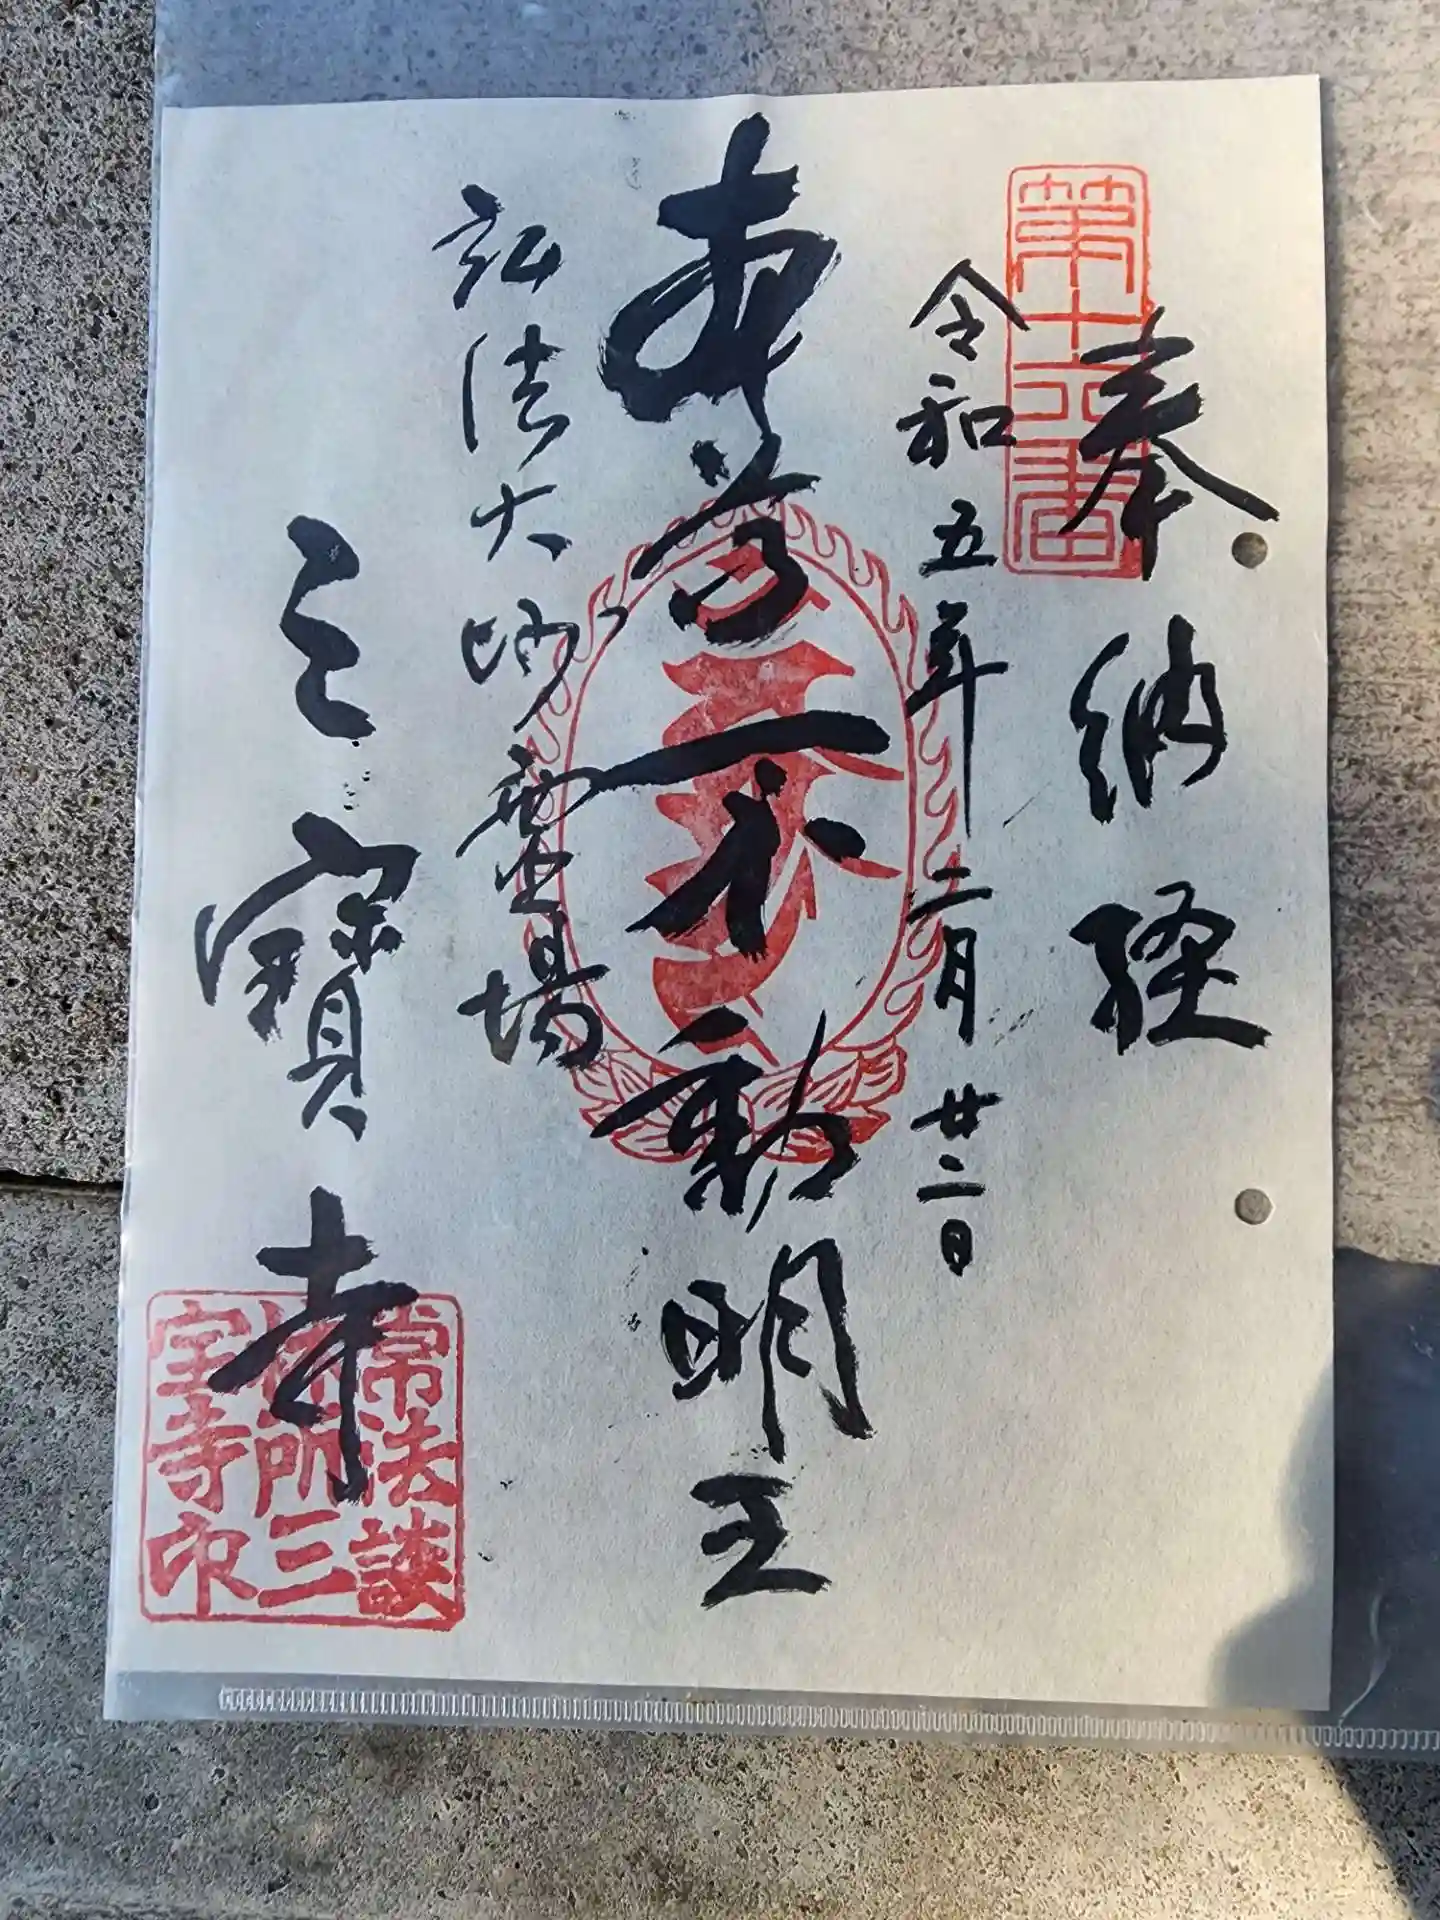 奉納経
第十六番
令和五年二月廿二日
本尊不動明王
弘法大師霊場
三寶寺
常法談
林所三
宝寺印